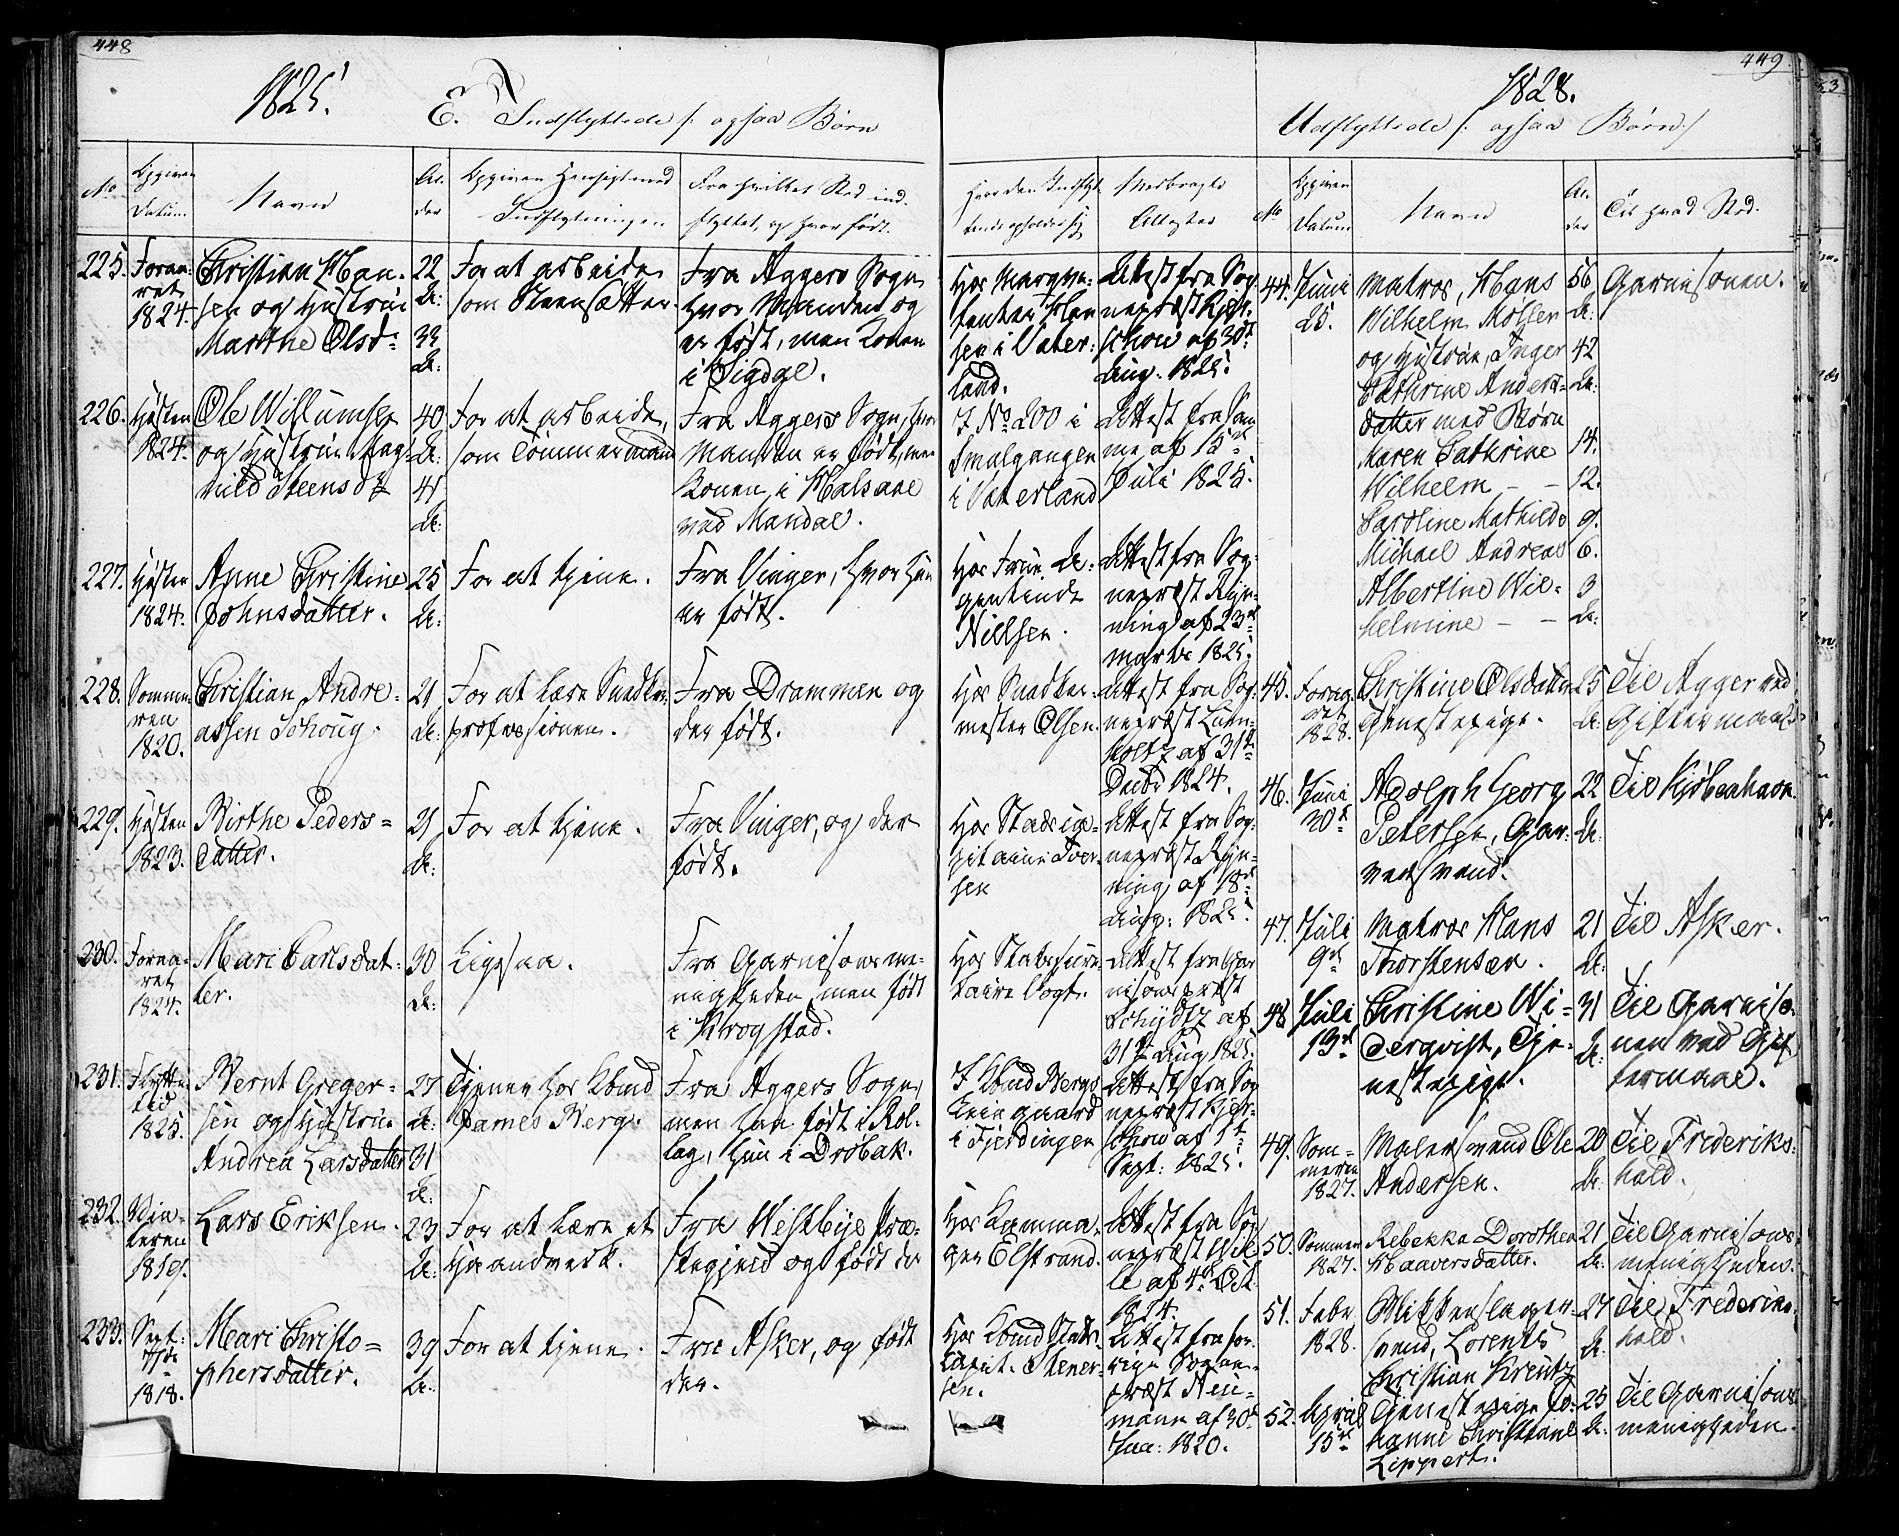 448
1825.
E. Indflyttede /: ogsaa Børn
No
Opgiven
Datum
Navn
Al-
der
Opgiven Hensigt med
Indflytningen
Fra hvilket Sted ind-
flyttet, og hvor født.
Hvor den Indflyt-
tende opholder sig
Medbragte
Attester
225.
Foraa-
ret
1824.
Christian Han-
sen og Hustrue
Marthe Olsd:
22
A:
33
A:
For at arbeide
som Steensætter.
Fra Aggers Sogn
hvor Manden og
er født, men Konen
i Sigdal.
Hos
sen i Vater-
land.
Attest fra Sog-
nepræst Kjer-
schow af 30t
Aug. 1825.
226.
Høsten
1824.
Ole Willumsen
og Hustrue Rag-
nild Steensd:
40
A:
41
A:
For at arbeide,
som Tømmermand
Fra Aggers Sogn, hvor
Manden er født, men
Konen i Halsaae
ved Mandal.
I No 200 i
Smalgangen
i Vaterland
Attest fra Sam-
me af 15de
Juli 1825.
227.
Høsten
1824.
Anne Christine
Johnsdatter.
25
A:
For at tjene.
Fra Vinger, hvor hun
er født.
Hos Frue A-
gentinde
Nielsen.
Attest fra Sog-
nepræst Ryn-
ning af 23de
Marts 1825.
228.
Somme-
ren
1820.
Christian Andre-
assen Schoug.
21
A:
For at lære Snedker-
professionen.
Fra Drammen og
der født.
Hos Snedker-
mester Olsen.
Attest fra Sog-
nepræst Lum-
holtz af 31te
Decbr 1824.
229.
Høsten
1823.
Birthe Peders-
datter.
21
A:
For at tjene.
Fra Vinger, og der
født.
Hos Stadsca-
pitaine Iver-
sen
Attest fra Sog-
nepræst Ryn-
ning af 18de
Aug: 1825.
230.
Foraa-
ret
1824.
Mari Carlsdat-
ter.
30
A:
Ligesaa.
Fra Garnisonsme-
nigheden, men født
i Krogstad.
Hos
Vogt.
Attest fra Gar-
nisonspræst
Schydtz af
31te Aug 1825.
231.
Flytte-
tid
1825.
Bernt Greger-
sen og Hustrue
Andrea Larsdatter
27
A:
31
A:
Tjener hos Kbmd
James Berg.
Fra Aggers Sogn,
men han født i Rol-
lag, hun i Drøbak.
I Kbmd Bergs
gaard
i Fjerdingen
Attest fra Sog-
nepræst Kjer-
schow af 1te
Sept: 1825.
232.
Vin-
teren
1819.
Lars Eriksen.
23
A:
For at lære et
Haandverk.
Fra Westbye Præ-
stegjeld og født der
Hos Kamma-
ger Elstrand.
Attest fra Sog-
nepræst Wil-
le af 4de Oct.
1824.
233.
Sept:
1818.
Mari Christo-
phersdatter.
39
A:
For at tjene.
Fra Asker, og født
der.
Hos Kbmd Stads-
capit. Stener-
sen.
Attest fra for-
rige Sogne-
præst Neu-
mann af 30te
Jan: 1820.
449.
1828.
Udflyttede /: ogsaa Børn :/
No
Opgiven
Datum
Navn
Al-
der
Til hvad Sted.
44.
Juni
25.
Matros, Hans
Wilhelm Møller
og Hustrue, Inger
Cathrine Anders-
datter med Børn
Maren Cathrine
Wilhelm - -
Caroline Mathilde
Michael Andreas
Albertine Wil-
helmine - -
56
A:
42
A:
14.
12.
9.
6.
3
A:
Garnisonen.
45.
Foraa-
ret
1828.
Christine Olsdatter
Tjenestepige.
25
A:
Til Agger ved
Giftermaal.
46.
Juni
30t
Adolph Georg
Petersen, Gar-
versvend.
22
A:
Til Kjøbenhavn
47.
Juli
9de
Matros Hans
Thorstensen.
21
A:
Til Asker.
48
Juli
13d
Christine Wi-
derqvist, Tje-
nestepige.
31
A:
Til Garniso-
nen ved Gif-
termaal.
49.
Som-
meren
1827.
Malersvend Ole
Andersen.
20
A:
Til Frederiks-
hald.
50.
Sommer
1827.
Rebekka Dorothea
Haaversdatter.
21
A:
Til Garnisons-
menigheden.
51.
Febr
1828.
svend, Lorents
Christian Kreutz
27
A:
Til Frederiks-
hald.
52.
April
15de
Tjenestepige Jo-
hanne Christiane
Lippert.
25
A:
Til Garnisons-
menigheden.